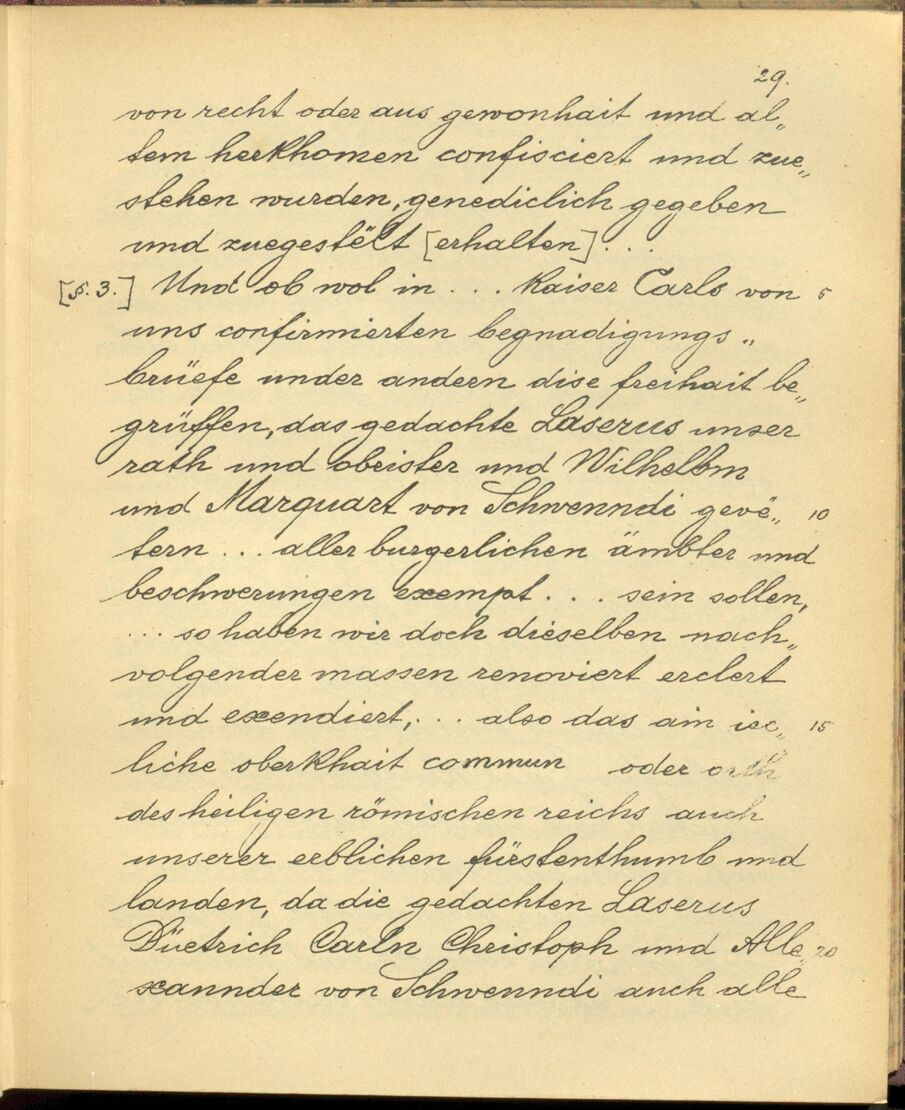 29.
von recht oder aus gewonhait und al„
tem herkhomen confisciert und zue„
stehen wurden, genediclich gegeben
und zuegestëlt [erhalten] . . .
[§. 3.] Und ob wol in . . . Kaiser Carls von 5
uns confirmierten begnadigungs„
brüefe under andern dise freihait be„
grüffen, das gedachte Laserus unser
rath und obeister und Wilhelbm
und Marquart von Schwenndi gevë„ 10
tern . . . aller burgerlichen ämbter und
beschwerungen exempt . . . sein sollen,
. . . so haben wir doch dieselben nach„
volgender massen renoviert erclert
und exendiert, . . . also das ain iec„ 15
liche oberkhait commun oder orth
des heiligen römischen reichs auch
unserer erblichen fürstenthumb und
landen, da die gedachten Laserus
Düetrich Carln Christoph und Alle„ 20
xannder von Schwenndi auch alle